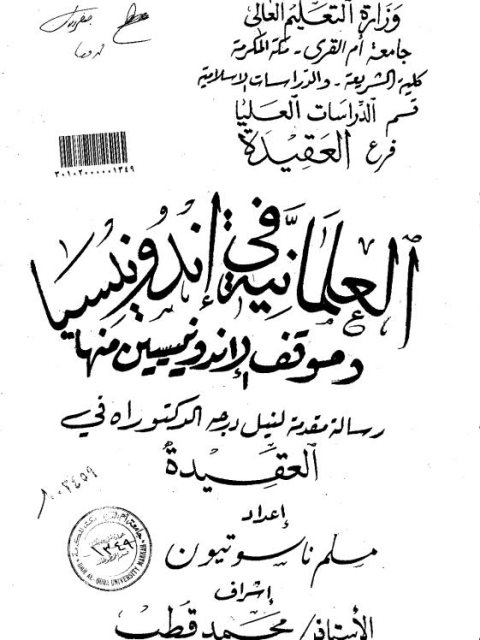 وزارة التعليم العالي
جامعة أم القرى - مكة المكرمة
كلية الشريعة - والدراسات الإسلامية
قسم الدراسات العليا
فرع العقيدة
٣٠١٠٢٠٠٠٠٠١٣٤٩
العلمانية في إندونيسيا
وموقف الاندونيسيين منها
رسالة مقدمة لنيل درجة الدكتوراه في
العقيدة
٠٠٣٤٥٩
إعداد
مسلم ناسوتيون
١٣٤٩
UMM AL-QURA UNIVERSITY MAKKAH
إشراف
الأستاذ/ محمد قطب